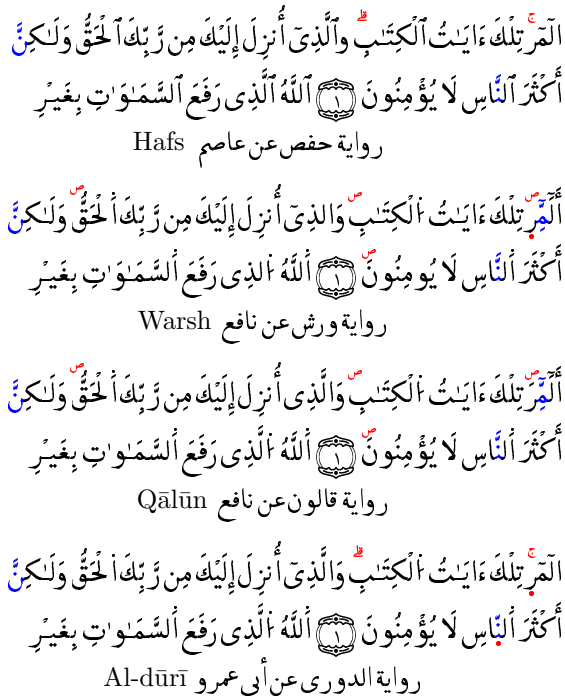 الٓمٓرۚ تِلْكَ ءَايَـٰتُ ٱلْكِتَـٰبِۗ وٱلَّذِىٓ أُنزِلَ إِلَيْكَ مِن رَّبِّكَ ٱلْحَقُّ وَلَـٰكِنَّ
أَكْثَرَ ٱلنَّاسِ لَا يُؤْمِنُونَ ١ ٱللَّهُ ٱلَّذِى رَفَعَ ٱلسَّمَـٰوَٰتِ بِغَيْرِ
رواية حفص عن عاصم Hafs
أَلَٓمِّٓرۖ تِلْكَ ءَايَـٰتُ اُ۬لْكِتَـٰبِۖ وَالذِىٓ أُنزِلَ إِلَيْكَ مِن رَّبِّكَ اَ۬لْحَقُّۖ وَلَـٰكِنَّ
أَكْثَرَ اَ۬لنَّاسِ لَا يُومِنُونَۖ ١ اَ۬للَّهُ اُ۬لذِى رَفَعَ اَ۬لسَّمَـٰوَٰتِ بِغَيْرِ
رواية ورش عن نافع Warsh
أَلَٓمِّٓرَۖ تِلْكَ ءَايَـٰتُ اُ۬لْكِتَـٰبِۖ وَالَّذِىٓ أُنزِلَ إِلَيْكَ مِن رَّبِّكَ اَ۬لْحَقُّۖ وَلَـٰكِنَّ
أَكْثَرَ اَ۬لنَّاسِ لَا يُؤْمِنُونَۖ ١ اَ۬للَّهُ اُ۬لَّذِى رَفَعَ اَ۬لسَّمَـٰوَٰتِ بِغَيْرِ
رواية قالون عن نافع Qālūn
الٓمٓرۚ تِلْكَ ءَايَـٰتُ اُ۬لْكِتَـٰبِۗ وَالَّذِىٓ أُنزِلَ إِلَيْكَ مِن رَّبِّكَ اَ۬لْحَقُّ وَلَـٰكِنَّ
أَكْثَرَ اَ۬لنّاسِ لَا يُؤْمِنُونَ ١ اَ۬للَّهُ اُ۬لَّذِى رَفَعَ اَ۬لسَّمَـٰوَٰتِ بِغَيْرِ
رواية الدورى عن أبى عمرو Al-dūrī